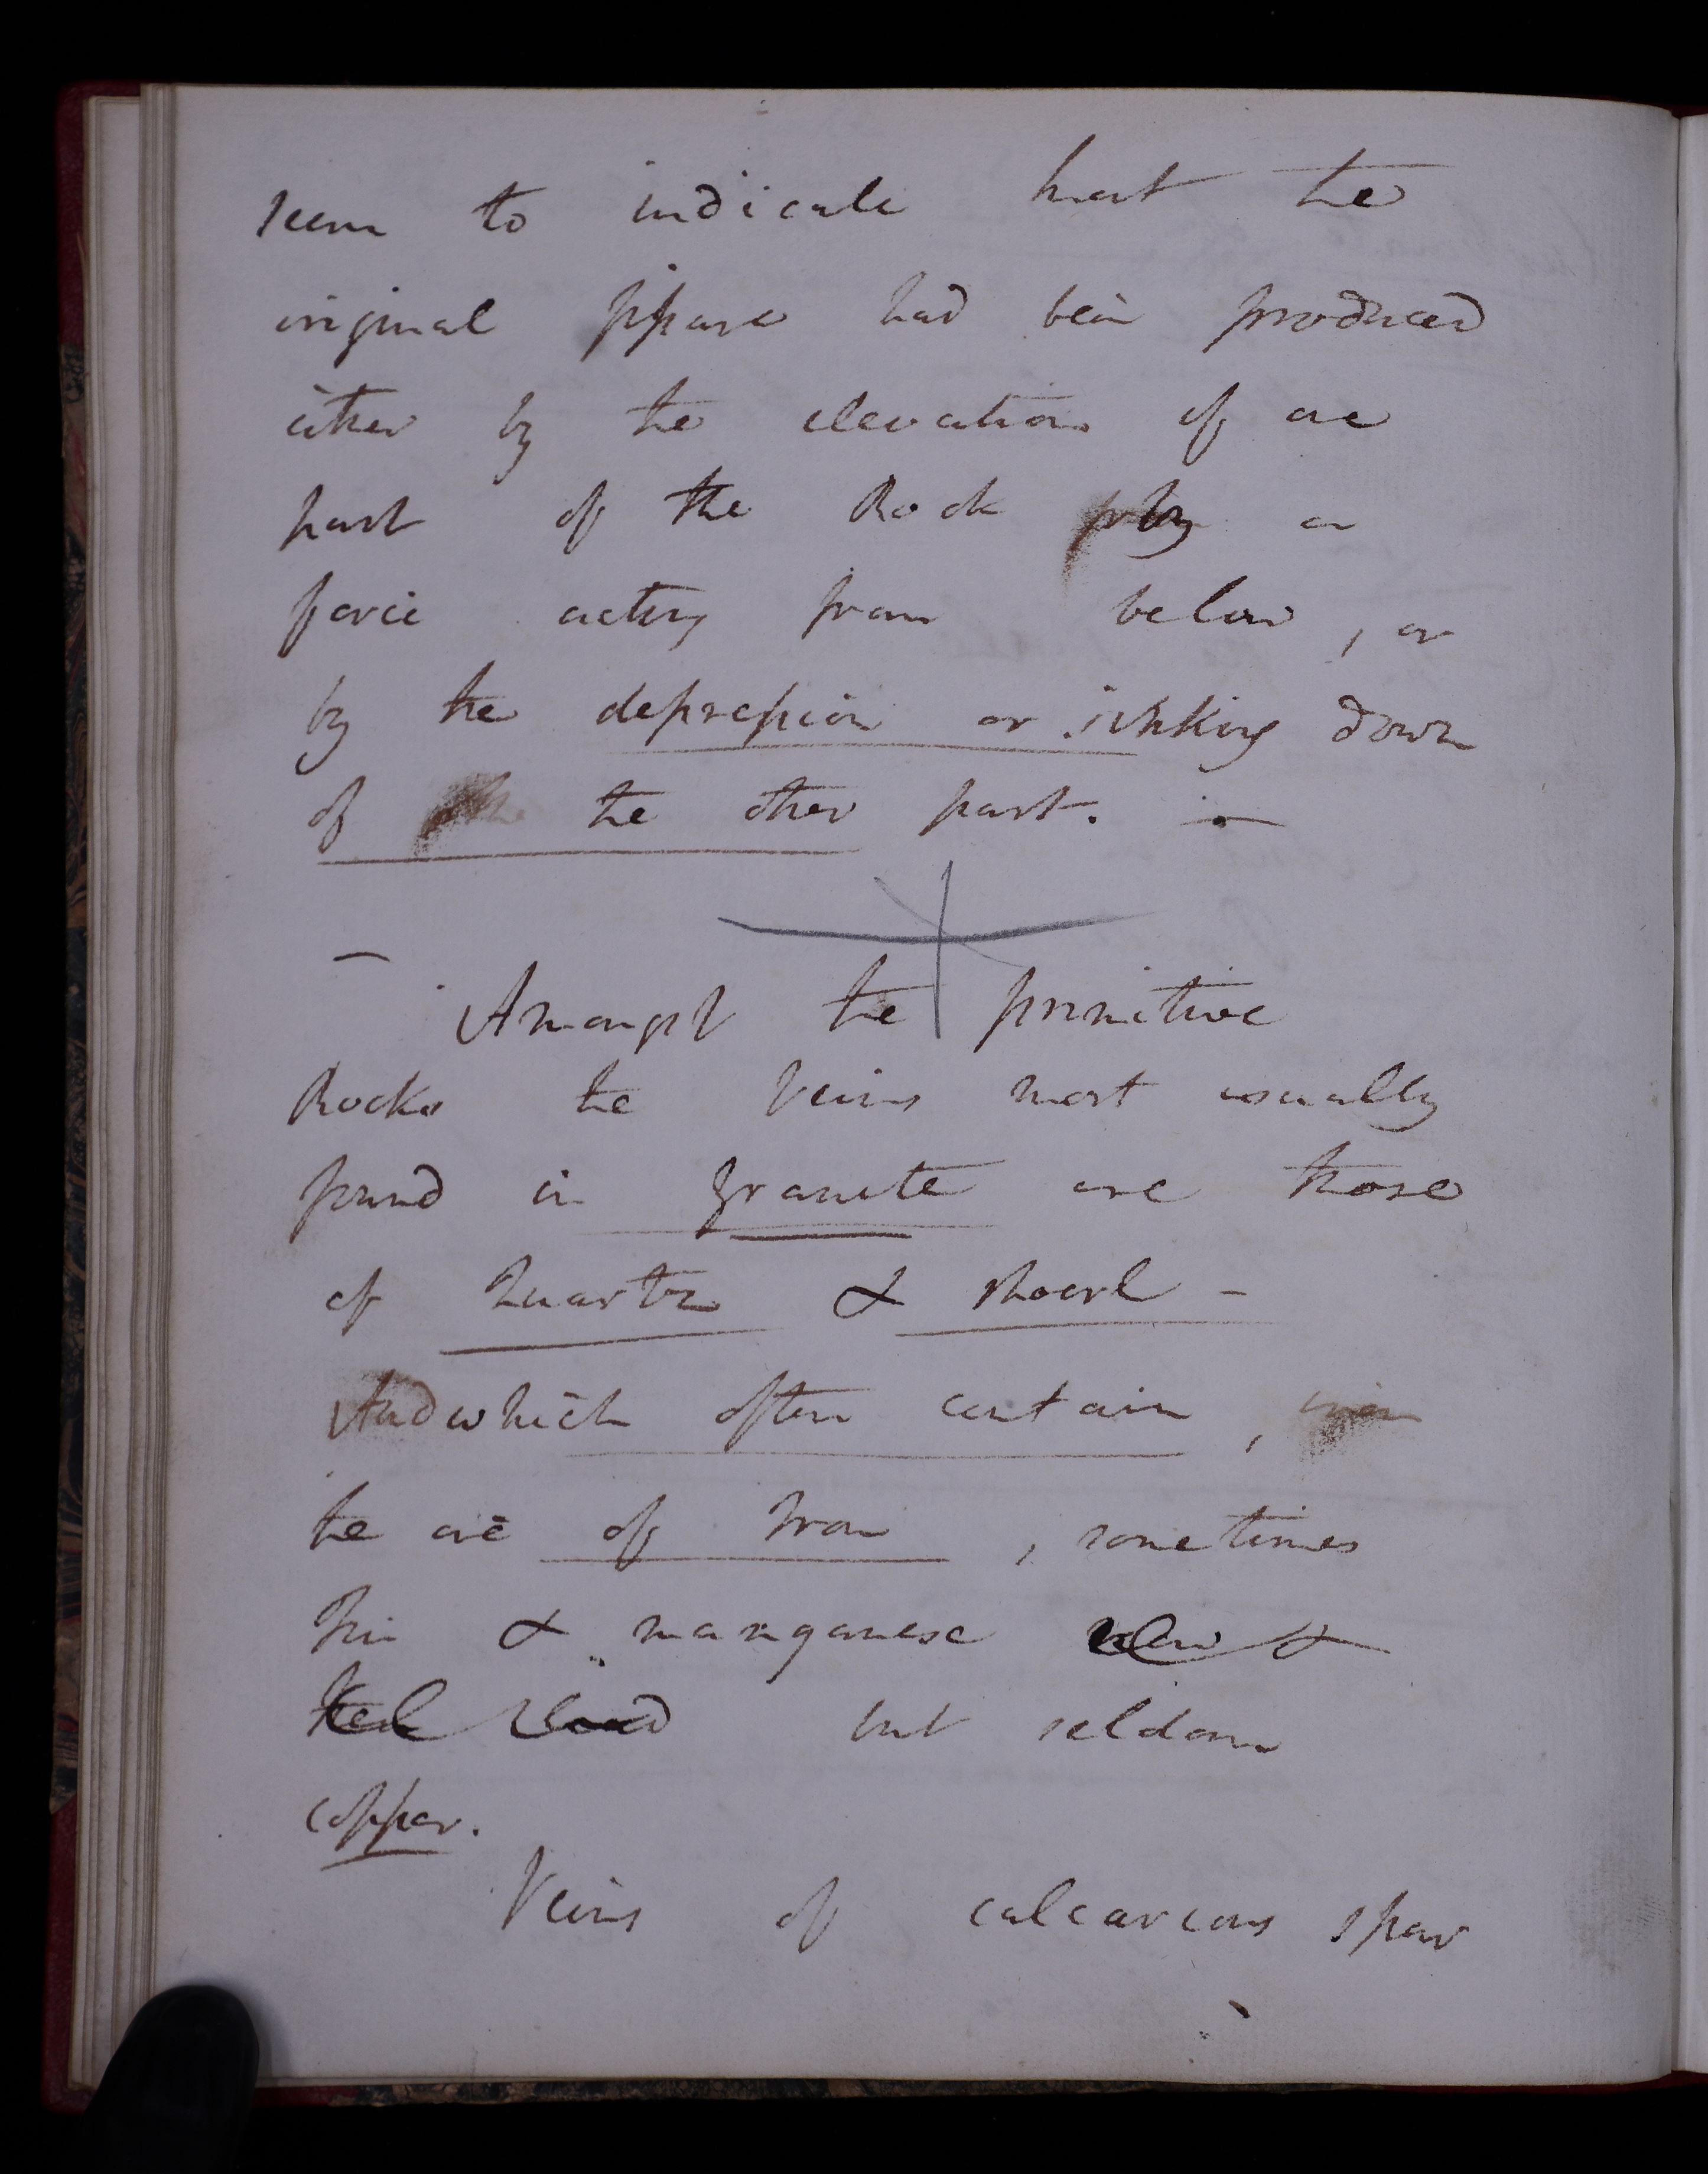 seem to indicate that the
original fissure had been produced
either by the elevation of one
part of the Rock by a
force acting from below, or
by the depression or sinking down
of the the other part. —
— Amongst the primitive
Rocks the Veins most usually
found in granite are those
of Quartz & Shoerl -
And which often contain,
the ore of Iron, sometimes
Tin & manganese &
but seldom
copper.
Veins of calcareous spar